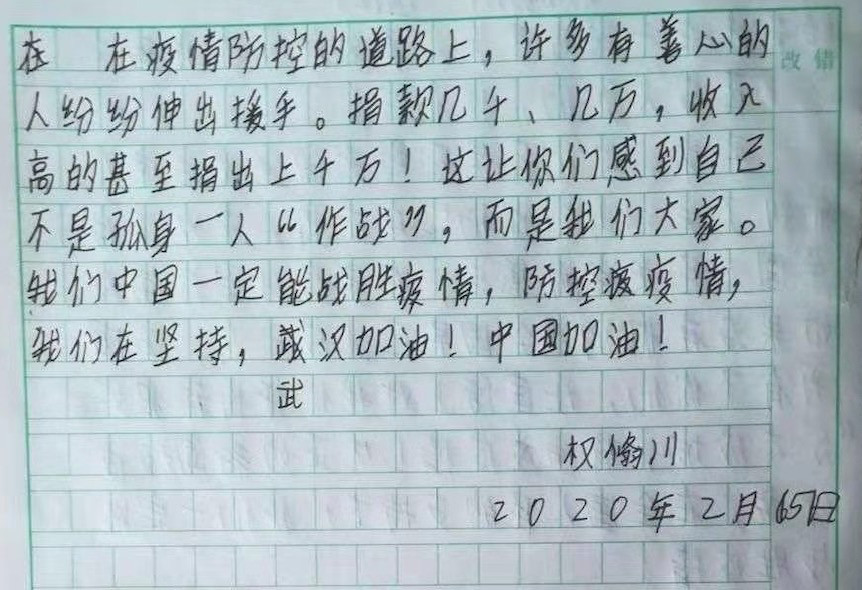 在 在疫情防控的道路上，许多有善心的
改错
人纷纷伸出援手。捐款几千、几万，收入
高的甚至捐出上千万！这让你们感到自己
不是孤身一人“作战”，而是我们大家。
我们中国一定能战胜疫情，防控疫疫情，
我们在坚持，武汉加油！中国加油！
武
权 川
2020年2月 日